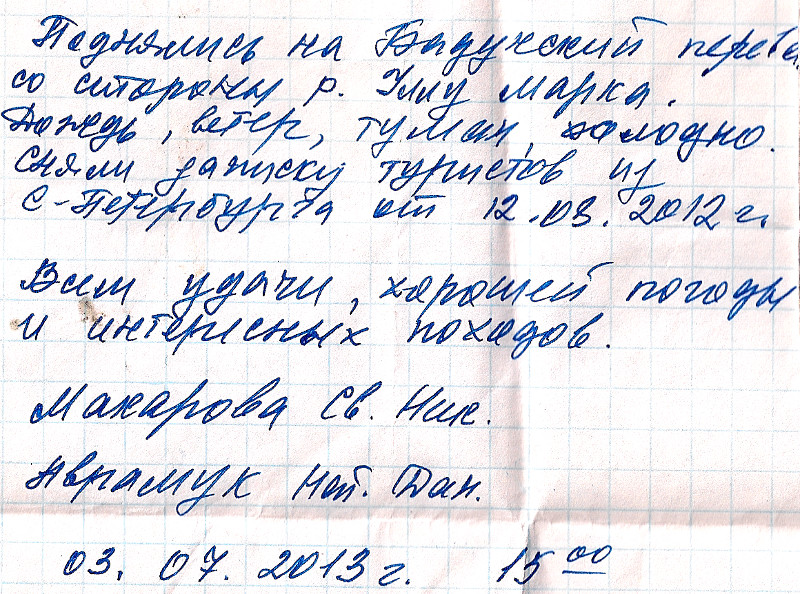 Поднялись на Бадукский перева
со стороны р. Уллу Марка.
Дождь, ветер, туман, холодно.
Сняли записку туристов из
С-Петербурга от 12.08.2012 г.
Всем удачи, хорошей погоды
и интересных походов.
Макарова Св. Ник.
Аврамук Нат. Дан.
03. 07. 2013 г. 15 00